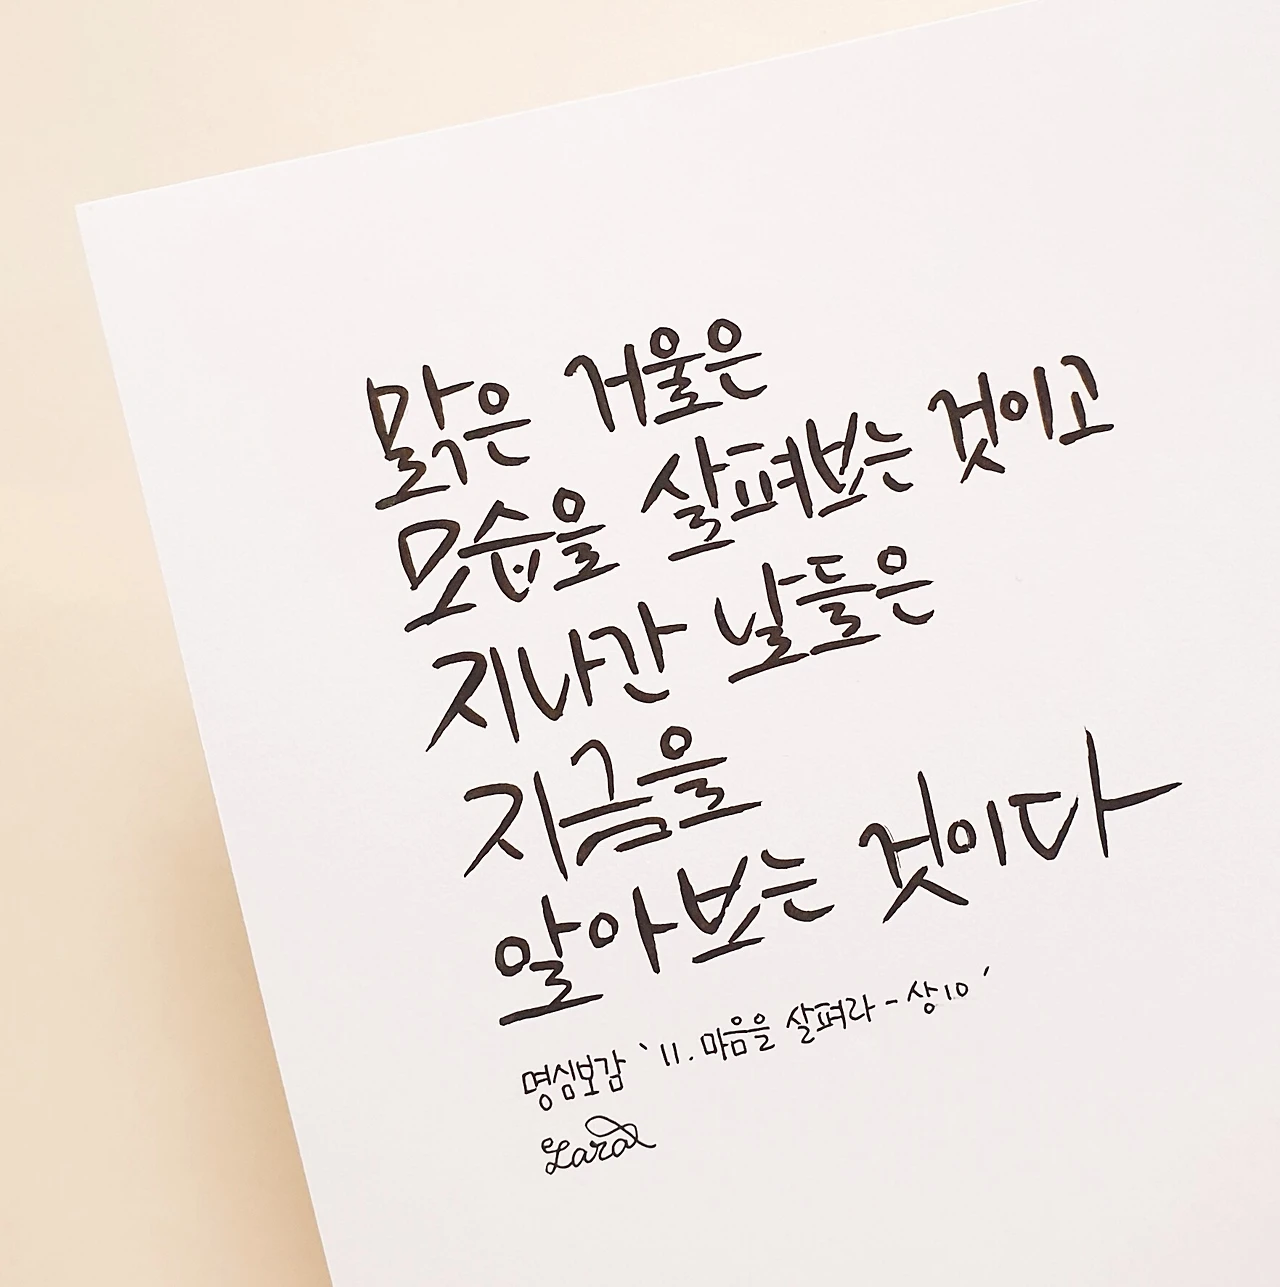 맑은 거울은
모습을 살펴보는 것이고
지나간 날들은
지금을
알아보는 것이다
명심보감 '11. 마음을 살펴라 - 상10'
Lara